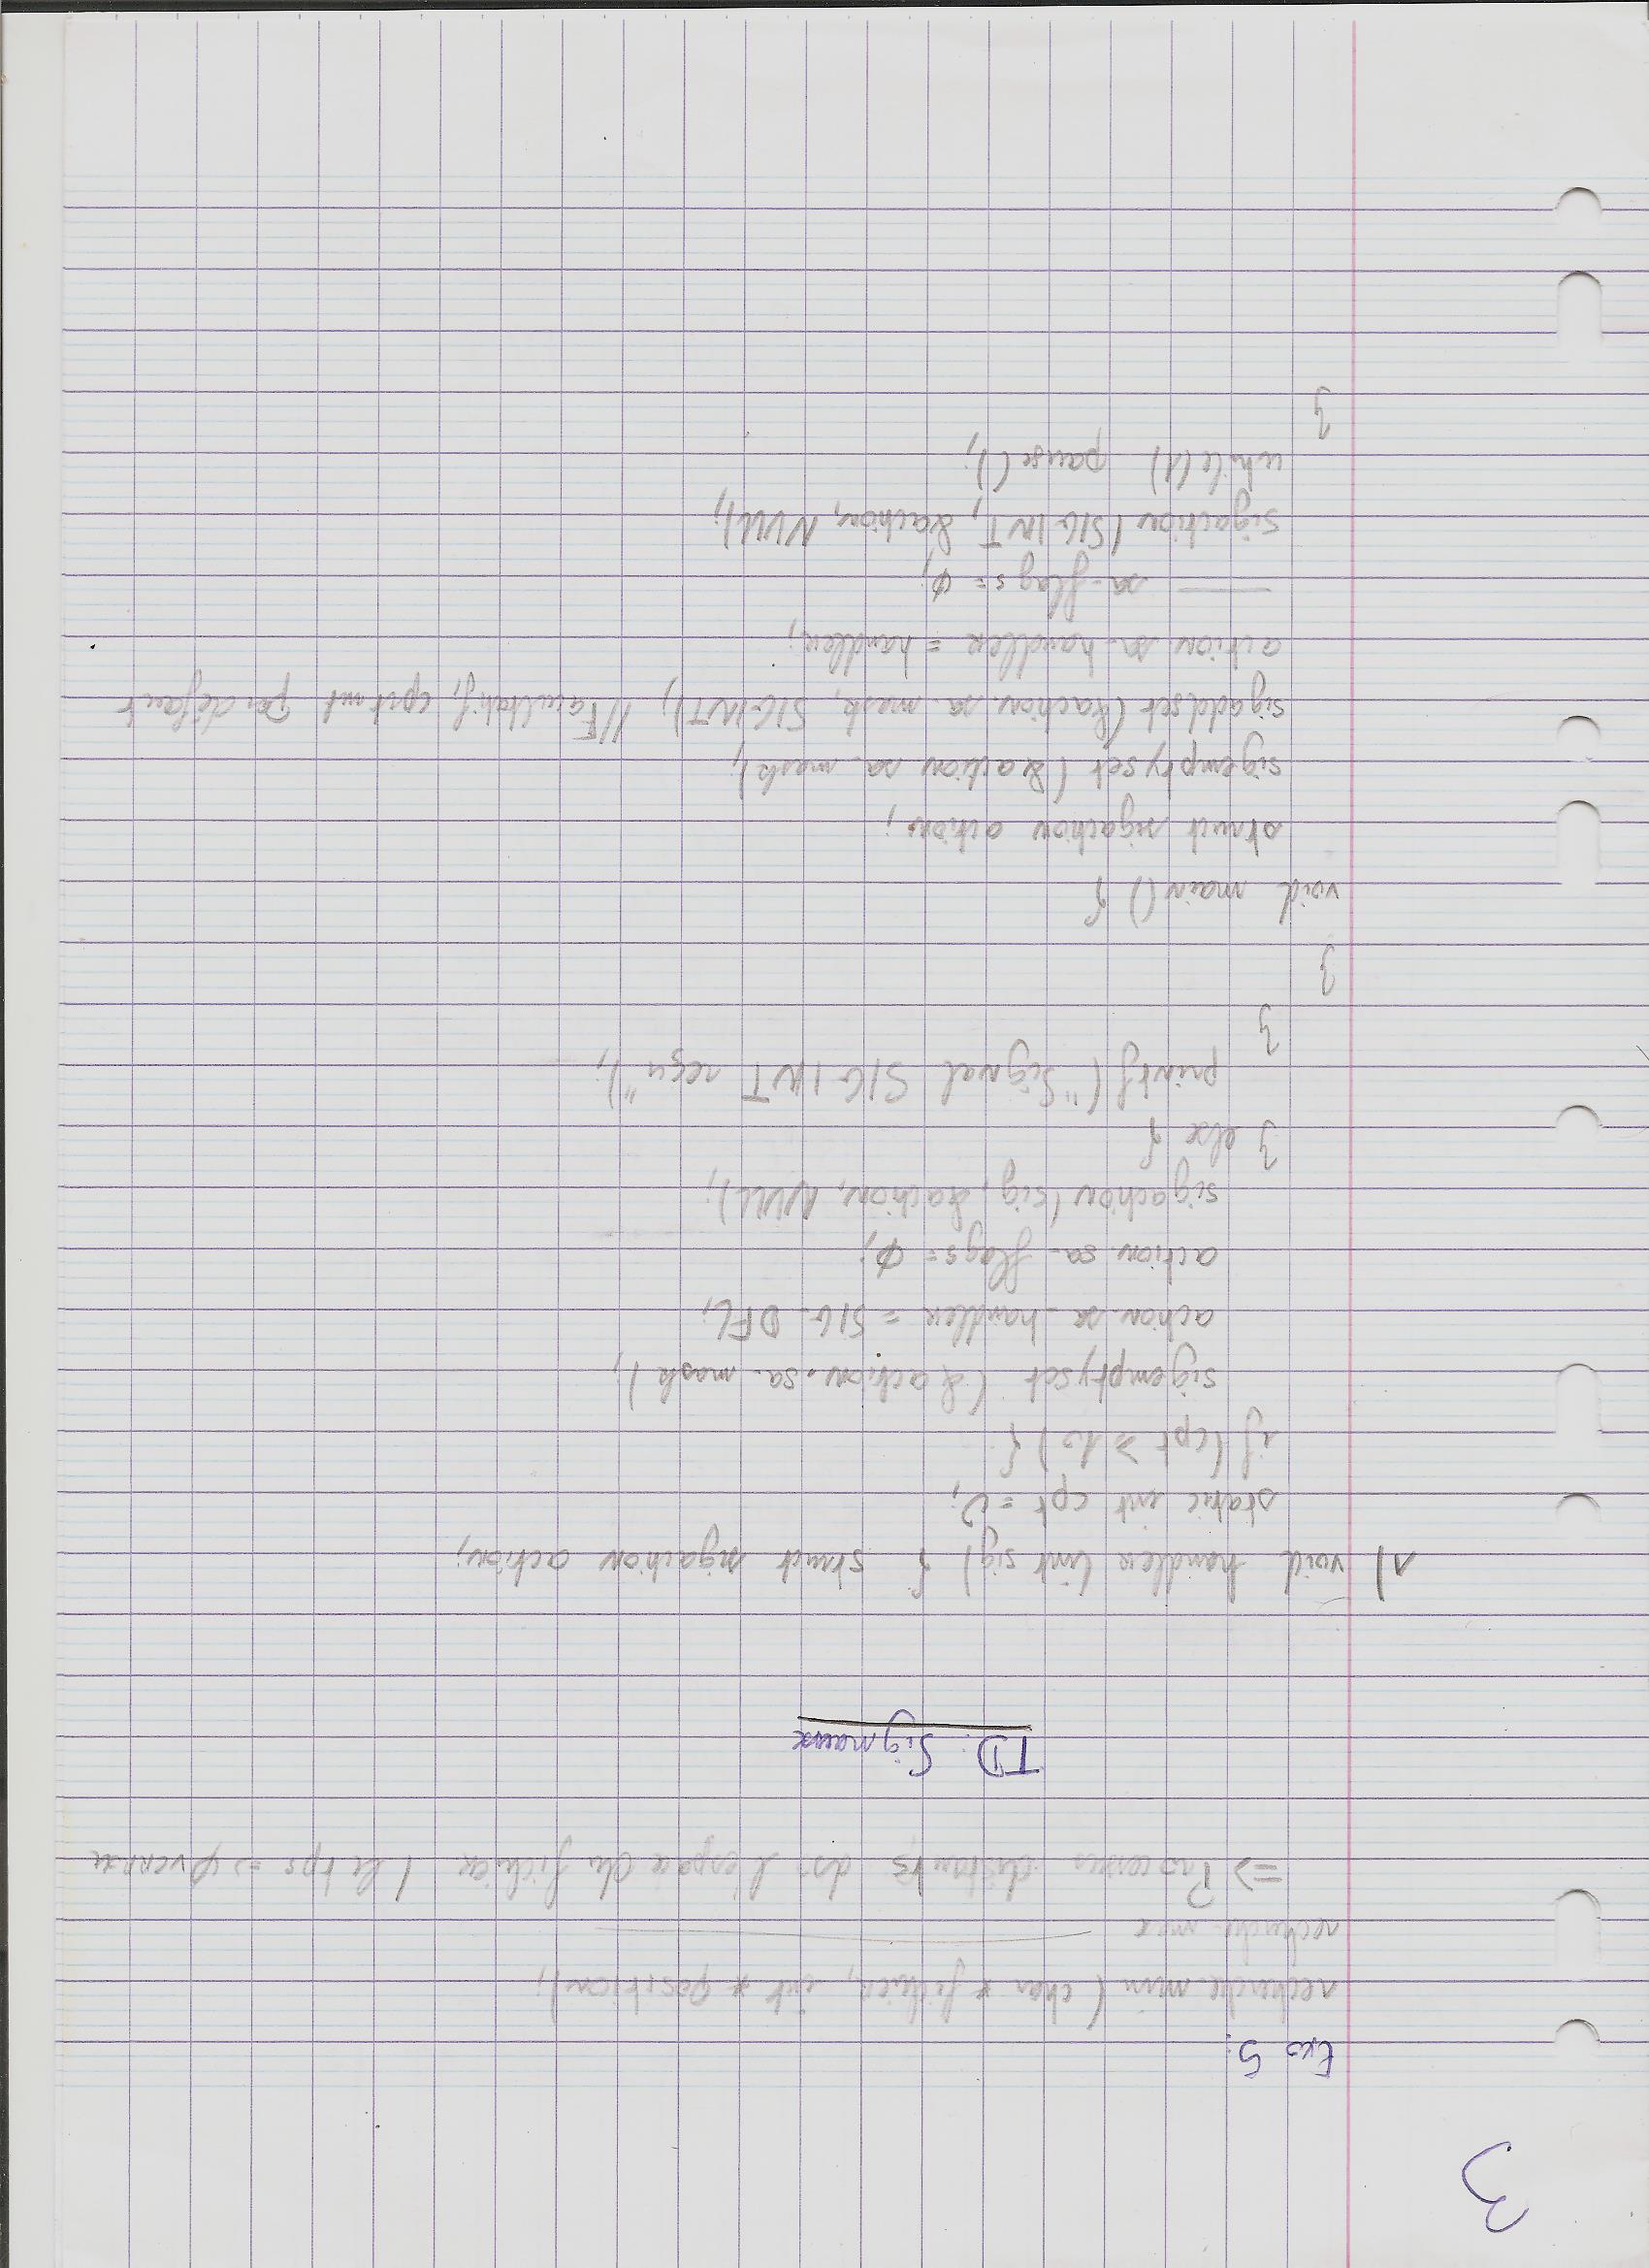 3
Exo 5:
recherche_min (char * fichier, int * position);
recherche_max
=> Processus distants ds l'espace du fichier / le tps => φ verrou
TD: Signaux
1) void handler (int sig) { struct sigaction action;
static int cpt = 0;
if (cpt > 10) {
sigemptyset (&action.sa_mask);
action.sa_handler = SIG_DFL;
action.sa_flags = φ;
sigaction (sig, &action, NULL);
} else {
printf ("Signal SIGINT reçu");
}
}
void main () {
struct sigaction action;
sigemptyset (&action.sa_mask);
sigaddset (&action.sa_mask, SIGINT); //Facultatif, cprt mt par défaut
action.sa_handler = handler;
—— sa_flags = φ;
sigaction (SIGINT, &action, NULL);
while (1) pause ();
}